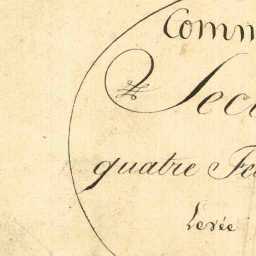 Comm
Sec
quatre Fe
Levée